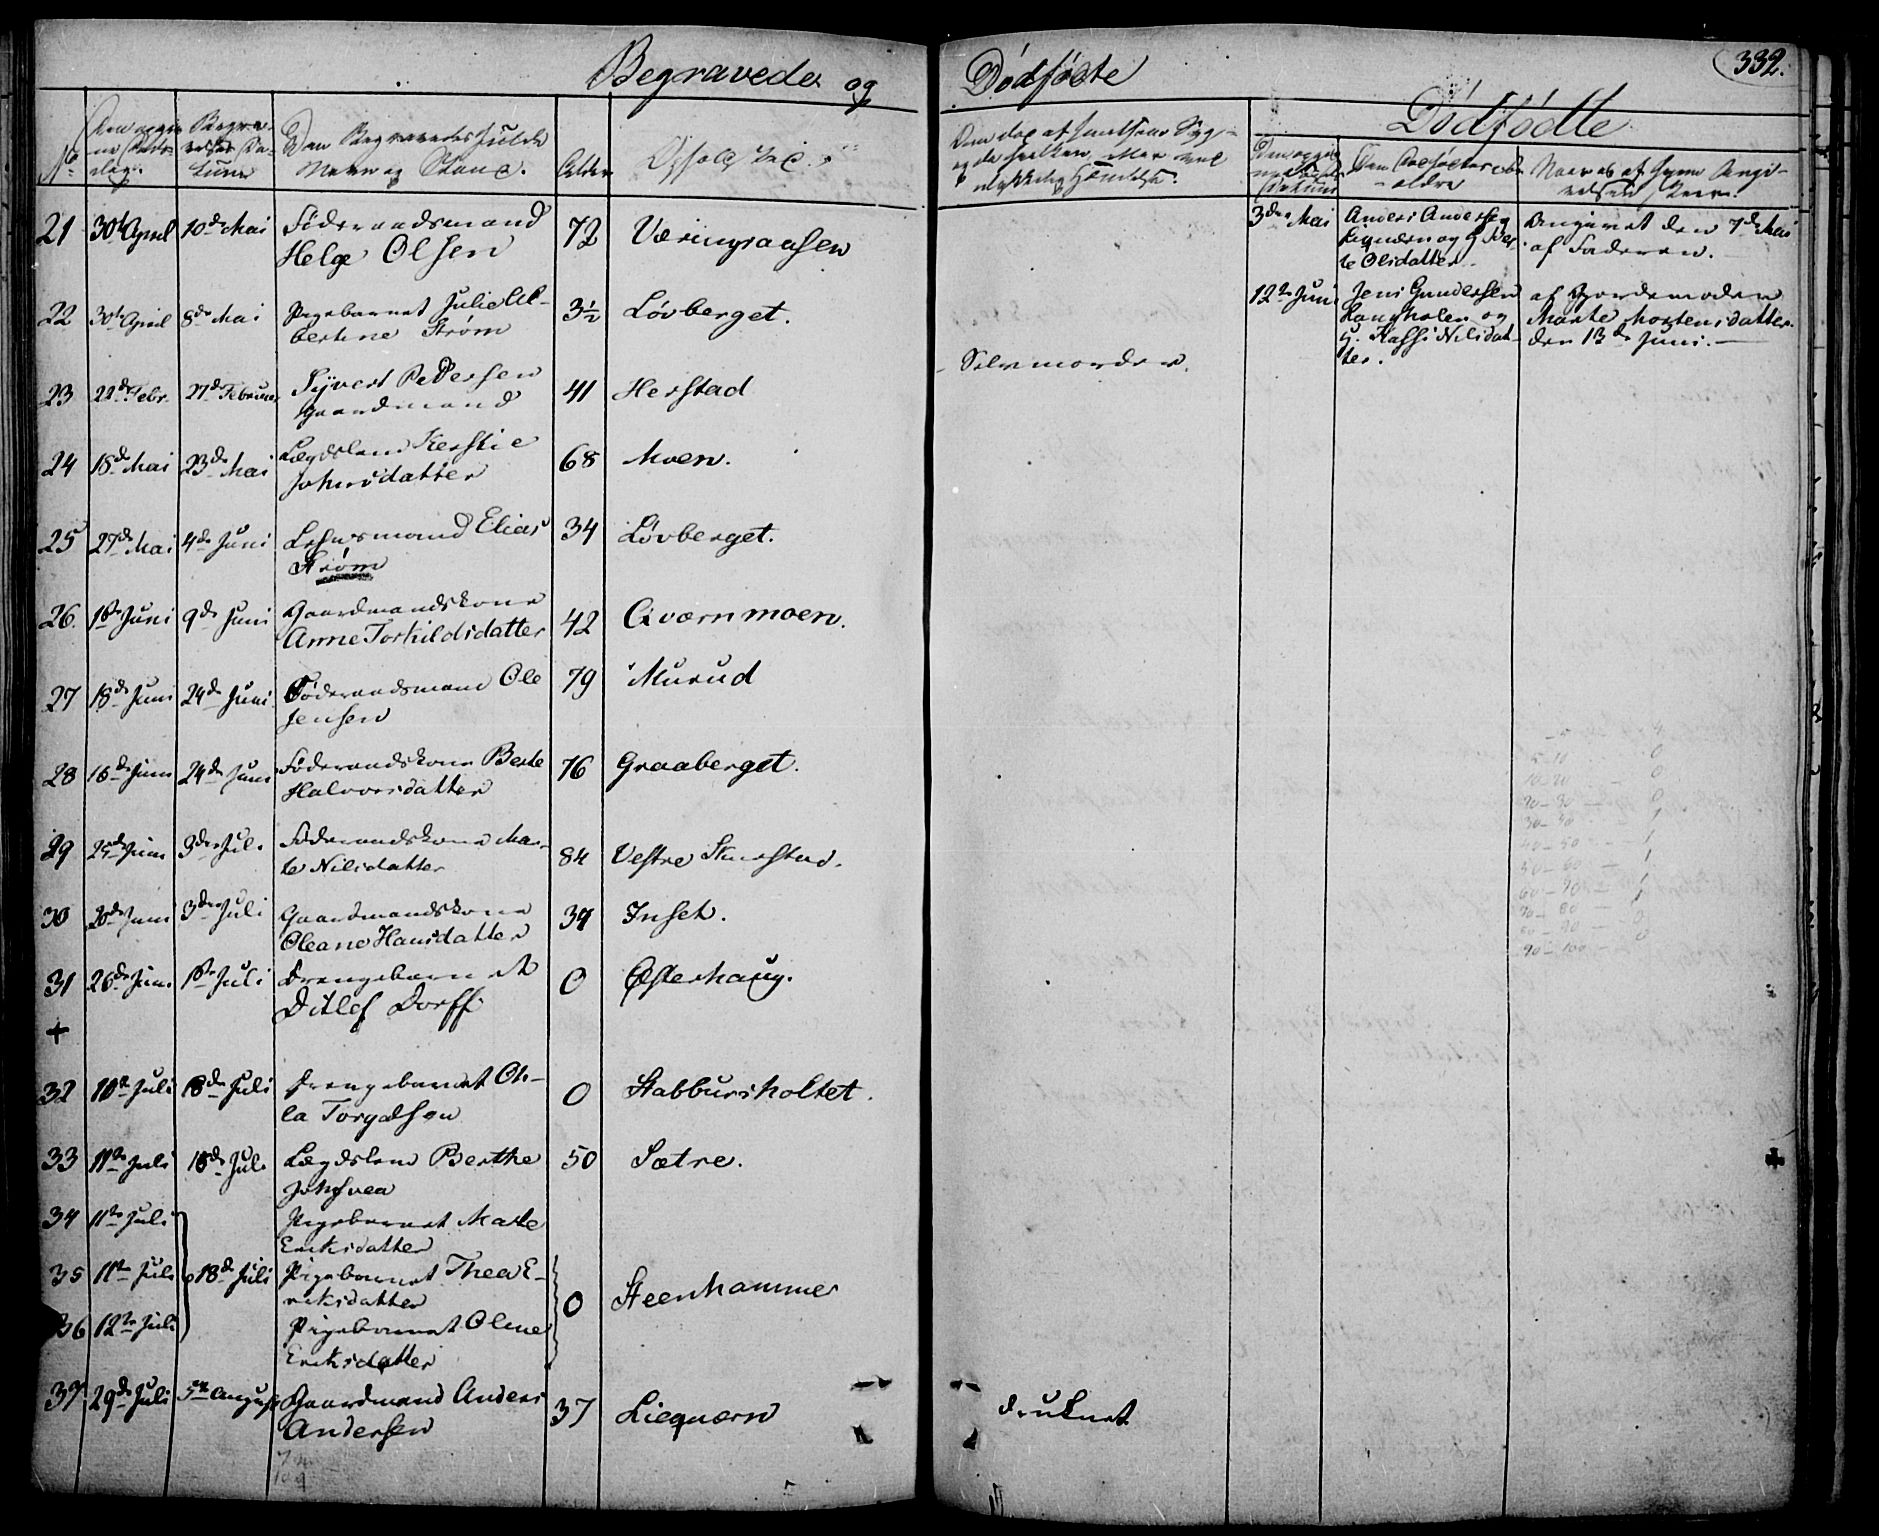 Begravede og Dødfødte
332.
No
Den opgivne Døds-
dag.
Begra-
velses Da-
tum
Den Begravedes fulde
Navn og Stand.
Alder
Opholdssted.
21 30te April 10de Mai Föderaadsmand
Helge Olsen 72 Væringsaasen
22 30te April 8de Mai Pigebarnet Julie Al-
bertine Strøm 3½ Lövberget.
23 22de Febr. 27de Februar Syvert Pedersen
Gaardmand 41 Herstad
24 18de Mai 23de Mai Lægdslem Kerstie
Johnsdatter 68 Moen.
25 27de Mai 4de Juni Lehnsmand Elias
Strøm 34 Lövberget.
26. 1ste Juni 9de Juni Gaardmandskone
Anne Torkildsdatter 42 Qværnmoen.
27 18de Juni 24de Juni Föderaadsmand Ole
Jensen 79 Murud
28 16de Juni 24de Juni Föderaadskone Berte
Halvorsdatter 76 Graaberget.
29 25de Juni 3die Juli Föderaadskone Mar-
te Nilsdatter 84 Vestre
30 20de Juni 3die Juli Gaardmandskone
Oleane Hansdatter 39 Inset.
31 26de Juni 1ste Juli Drengebarnet
Ditlef Dorff 0 Østerhaug.
+
32 10de Juli 18de Juli Drengebarnet Oh-
la Torgalsen 0 Stabbursholtet.
33 11te Juli 18de Juli Lægdslem Berthe
50 Sætre.
34 11te Juli Pigebarnet Marte
Eriksdatter
35 11te Juli 18de Juli Pigebarnet Thea E-
riksdatter 0 Steenhammer
36 12te Juli Pigebarnet Oline
Eriksdatter
37 29de Juli 5te August Gaardmand Anders
Andersen 37 Lieqværn
- Selvmorder.
druknet
Dödfödte
3die Mai Anders Andersen
Liqværn og H.
te Olsdatter
Angivet den 7de Mai
af Faderen.
12te Juni Jens Gundersen
og
H. Nilsdat-
ter.
af Gjordemoder
Marte Mortensdatter
den 13de Juni.
5-10 0
10-20 0
20-30 0
30-40 1
40-50 1
50-60 1
60-70 1
70-80 1
80-90 0
90-100 0
+